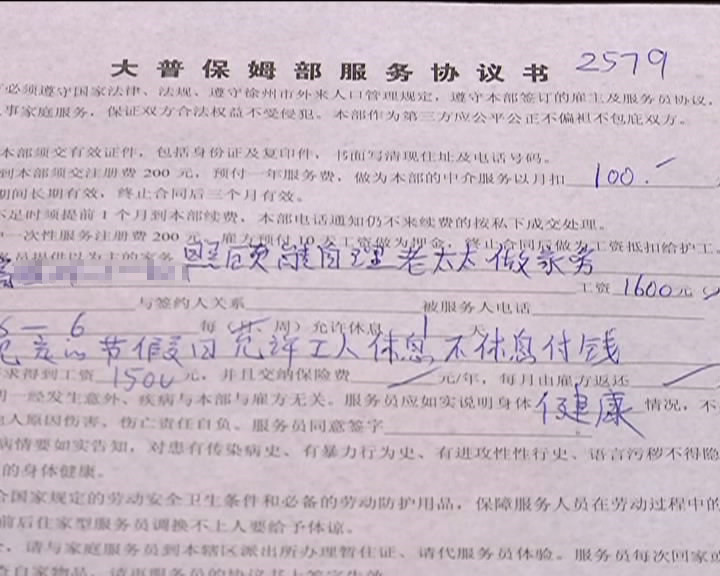 大普保姆部服务协议书 2579
必须遵守国家法律、法规、遵守徐州市外来人口管理规定，遵守本部签订的雇主及服务员协议，
事家庭服务，保证双方合法权益不受侵犯。本部作为第三方应公平公正不偏袒不包庇双方。
本部须交有效证件，包括身份证及复印件，书面写清现住址及电话号码。
到本部须交注册费 200 元，预付一年服务费，做为本部的中介服务以月扣 100.-
期间长期有效，终止合同后三个月有效。
不足时须提前 1 个月到本部续费，本部电话通知仍不来续费的按私下成交处理。
一次性服务注册费 200 元，雇方预付 10 天工资做为押金，终止合同后做为工资抵扣给护工。
员提供以为主的家务 照顾能自理老太太做家务
工资 1600 元
与签约人关系 被服务人电话
5—6 每（月、周）允许休息 1 天
的节假日允许工人休息不休息付钱
求得到工资 1500 元，并且交纳保险费 元/年，每月由雇方返还
一经发生意外、疾病与本部与雇方无关。服务员应如实说明身体 健康 情况，不
人原因伤害，伤亡责任自负。服务员同意签字
病情要如实告知，对患有传染病史、有暴力行为史、有进攻性性行史、语言污秽不得隐
的身体健康。
合国家规定的劳动安全卫生条件和必备的劳动防护用品，保障服务人员在劳动过程中的
前后住家型服务员调换不上人要给予体谅。
，请与家庭服务员到本辖区派出所办理暂住证、请代服务员体验。服务员每次回家或
自家物品，请再服务员的协议书上签字生效